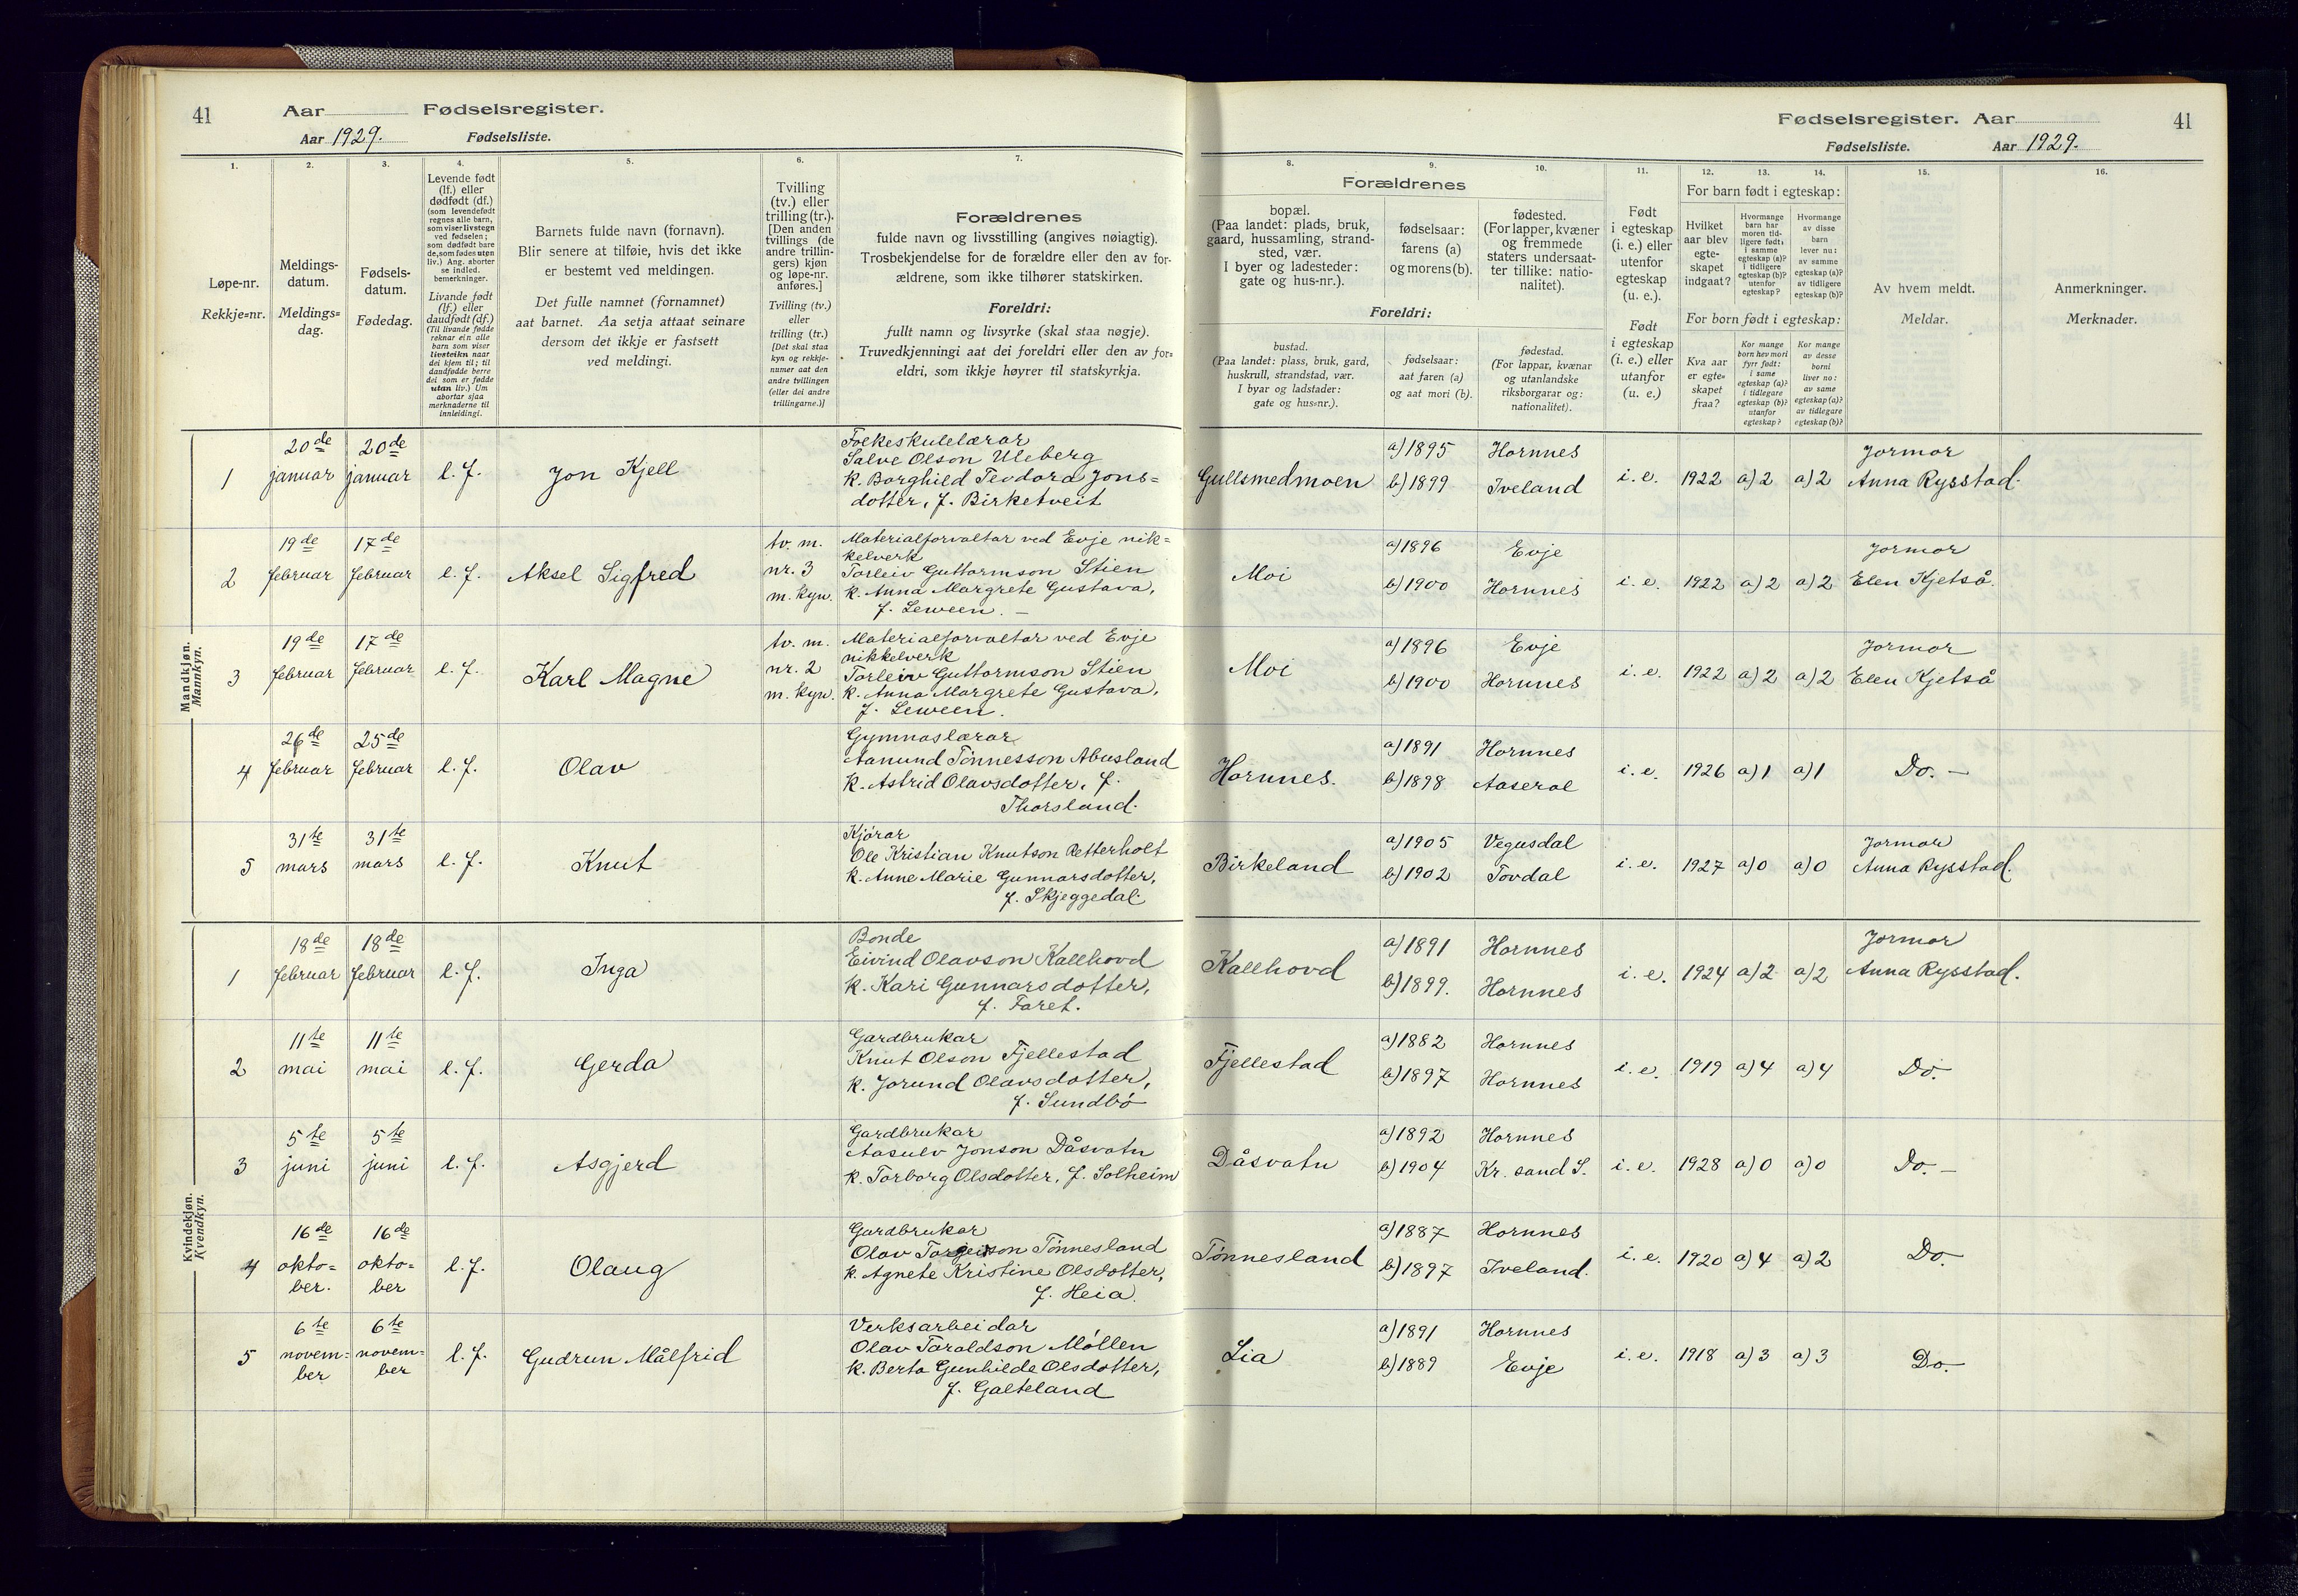 41
Aar
Fødselsregister.
Aar 1929.
Fødselsliste.
1.
2.
3.
4.
5.
6.
7.
Løpe-nr.
Rekkje=nr.
Meldings-
datum.
Meldings=
dag.
Fødsels-
datum.
Fødedag.
Levende født
(lf.) eller
dødfødt (df.)
(som levendefødt
regnes alle barn,
som viser livstegn
ved fødselen;
som dødfødt bare
de, som fødes uten
liv.) Ang. aborter
se indled.
bemerkninger.
Livande født
(lf.) eller
daudfødt (df.)
(Til livande fødde
reknar ein alle
barn som viser
livsteikn naar
dei kjem til; til
daudfødde berre
dei som er fødde
utan liv.) Um
abortar sjaa
merknaderne til
innleidingi.
Barnets fulde navn (fornavn).
Blir senere at tilføie, hvis det ikke
er bestemt ved meldingen.
Det fulle namnet (fornamnet)
aat barnet. Aa setja attaat seinare
dersom det ikkje er fastsett
ved meldingi.
Tvilling
(tv.) eller
trilling (tr.).
[Den anden
tvillings (de
andre trillin-
gers) kjøn
og løpe-nr.
anføres.]
Tvilling (tv.)
eller
trilling (tr.)
[Det skal staa
kyn og rekkje-
numer aat den
andre tvillingen
(eller dei andre
trillingarne.)]
Forældrenes
fulde navn og livsstilling (angives nøiagtig).
Trosbekjendelse for de forældre eller den av for-
ældrene, som ikke tilhører statskirken.
Foreldri:
fullt namn og livsyrke (skal staa nøgje).
Truvedkjenningi aat dei foreldri eller den av for=
eldri, som ikkje høyrer til statskyrkja.
Mandkjøn.
Mannkyn.
1
20de
januar
20de
januar
l. f.
Jon Kjell
Folkeskulelærar
Salve Olson Uleberg
k. Borghild Teodora Jons=
dotter, f. Birketveit
2
19de
februar
17de
februar
l. f.
Aksel Sigfred
tv. m.
nr. 3
m. kyn.
Materialforvaltar ved Evje nik=
kelverk
Torleiv Guttormson Stien
k. Anna Margrete Gustava,
f. Leween. —
3
19de
februar
17de
februar
l. f.
Karl Magne
tv. m.
nr. 2
m. kyn.
Materialforvaltar ved Evje
nikkelverk
Torleiv Guttormson Stien
k. Anna Margrete Gustava,
f. Leween.
4
26de
februar
25de
februar
l. f.
Olav
Gymnaslærar
Aanund Tønnesson Abusland
k. Astrid Olavsdotter, f.
Thorsland.
5
31te
mars
31te
mars
l. f.
Knut
Kjørar
Ole Kristian Knutson Retterholt
k. Anne Marie Gunnarsdotter,
f. Skjeggedal.
Kvindekjøn.
Kvendkyn.
1
18de
februar
18de
februar
l. f.
Inga
Bonde
Eivind Olavson Kallhovd
k. Kari Gunnarsdotter,
f. Faret.
2
11te
mai
11te
mai
l. f.
Gerda
Gardbrukar
Knut Olson Fjellestad
k. Jorund Olavsdotter,
f. Sundbø
3
5te
juni
5te
juni
l. f.
Asgjerd
Gardbrukar
Aasulv Jonson Dåsvatn
k. Torborg Olsdotter, f. Solheim
4
16de
okto=
ber.
16de
okto=
ber
l. f.
Olaug
Gardbrukar
Olav Torgeirson Tønnesland
k. Agnete Kristine Olsdotter,
f. Heia.
5
6te
novem=
ber
6te
novem=
ber
l. f.
Gudrun Målfrid
Verksarbeidar
Olav Taraldson Møllen
k. Berta Gunhilde Olsdotter,
f. Galteland
Fødselsregister. Aar
41
Fødselsliste.
Aar 1929.
8.
9.
10.
11.
12.
13.
14.
15.
16.
Forældrenes
bopæl.
(Paa landet: plads, bruk,
gaard, hussamling, strand-
sted, vær.
I byer og ladesteder:
gate og hus-nr.).
fødselsaar:
farens (a)
og morens (b).
fødested.
(For lapper, kvæner
og fremmede
staters undersaat-
ter tillike: natio-
nalitet).
Foreldri:
bustad.
(Paa landet: plass, bruk, gard,
huskrull, strandstad, vær.
I byar og ladstader:
gate og hus=nr.).
fødselsaar:
aat faren (a)
og aat mori (b).
fødestad.
(For lappar, kvænar
og utanlandske
riksborgarar og:
nationalitet).
Født
i egteskap
(i. e.) eller
utenfor
egteskap
(u. e.).
Født
i egteskap
(i. e.) eller
utanfor
(u. e.)
For barn født i egteskap:
Hvilket
aar blev
egte-
skapet
indgaat?
Hvormange
barn har
moren tid-
ligere født:
i samme
egteskap (a)?
i tidligere
egteskap (b)?
utenfor
egteskap?
Hvormange
av disse
barn
lever nu:
av samme
egteskap (a)?
av tidligere
egteskap (b)?
For born født i egteskap:
Kva aar
er egte=
skapet
fraa?
Kor mange
born hev mori
fyrr født:
i same
egteskap (a)?
i tidlegare
egteskap (b)?
utanfor
egteskap?
Kor mange
av desse
borni
liver no:
av same
egteskap (a)?
av tidlegare
egteskap (b)?
Av hvem meldt.
Meldar.
Anmerkninger.
Merknader.
Gullsmedmoen
a) 1895
b) 1899
Hornnes
Iveland
i. e.
1922
a) 2
a) 2
Jormor
Anna Rysstad.
Moi
a) 1896
b) 1900
Evje
Hornnes
i. e.
1922
a) 2
a) 2
Jormor
Elen Kjetså.
Moi
a) 1896
b) 1900
Evje
Hornnes
i. e.
1922
a) 2
a) 2
Jormor
Elen Kjetså
Hornnes.
a) 1891
b) 1898
Hornnes
Aaseral
i. e.
1926
a) 1
a) 1
Do. —
Birkeland
a) 1905
b) 1902
Vegusdal
Tovdal
i. e.
1927
a) 0
a) 0
Jormor
Anna Rysstad.
Kallhovd
a) 1891
b) 1899.
Hornnes
Hornnes
i. e.
1924
a) 2
a) 2
Jormor
Anna Rysstad.
Fjellestad
a) 1882
b) 1897
Hornnes
Hornnes
i. e.
1919
a) 4
a) 4
Do.
Dåsvatn
a) 1892
b) 1904
Hornnes
Kr. sand S.
i. e.
1928
a) 0
a) 0
Do. —
Tønnesland
a) 1887
b) 1897
Hornnes
Iveland.
i. e.
1920
a) 4
a) 2
Do.
Lia
a) 1891
b) 1889
Hornnes
Evje
i. e.
1918
a) 3
a) 3
Do.